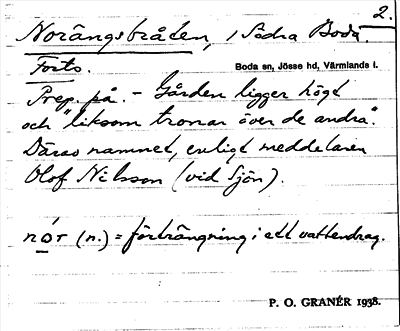 2.
Norängstråten, i Södra Boda.
Forts.
Boda sn, Jösse hd, Värmlands l.
Prep. på. - Gården ligger högt
och "liksom tronar över de andra".
Därav namnet, enligt meddelaren
Olof Nilsson (vid Sjön).
nór (n.) = förträngning i ett vattendrag.
P. O. GRANÉR 1938.